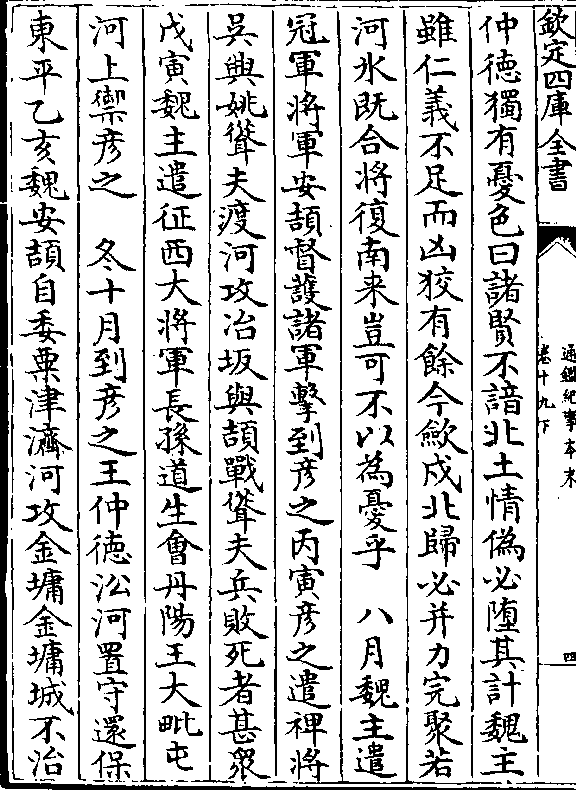 欽定四庫全書
通鑑紀事本末
卷十九下
四
仲德獨有憂色曰諸賢不諳北土情偽必墮其計魏主
雖仁義不足而凶狡有餘今歛戍北歸必并力完聚若
河氷既合將復南来豈可不以為憂乎　八月魏主遣
冠軍將軍安頡督護諸軍擊到彦之丙寅彦之遣裨將
吴興姚聳夫渡河攻冶坂與頡戰聳夫兵敗死者甚衆
戊寅魏主遣征西大將軍長孫道生會丹陽王大毗屯
河上禦彦之　冬十月到彦之王仲德沿河置守還保
東平乙亥魏安頡自委粟津濟河攻金墉金墉城不治